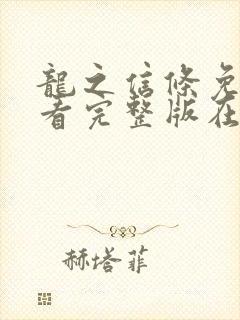 龍之信條免
看完整版在
赫塔菲